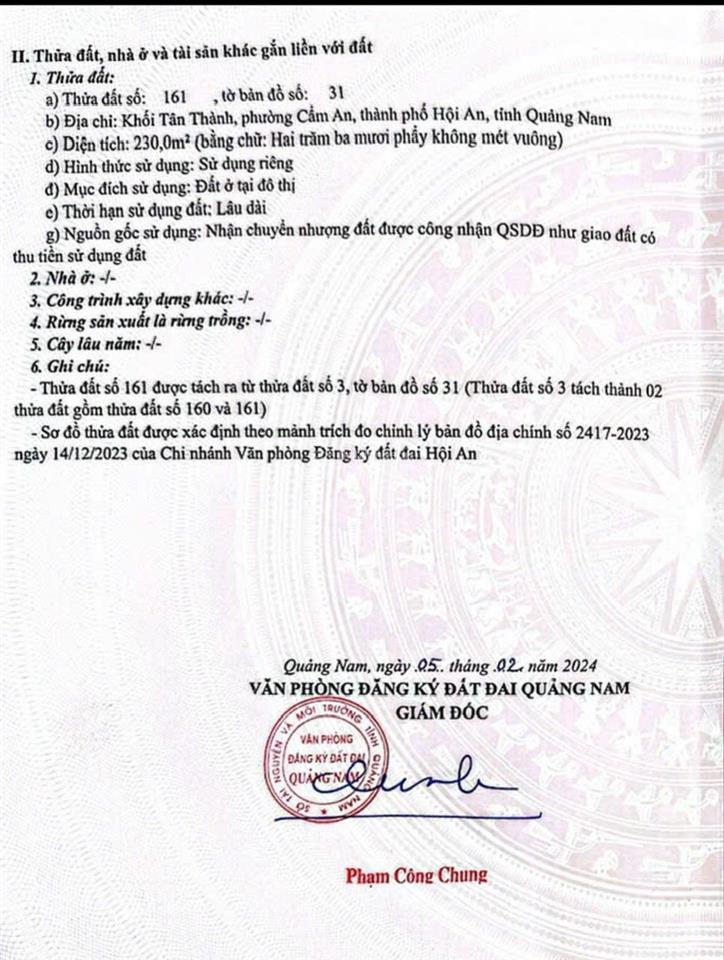 II. Thửa đất, nhà ở và tài sản khác gắn liền với đất
1. Thửa đất:
a) Thửa đất số: 161 , tờ bản đồ số: 31
b) Địa chỉ: Khối Tân Thành, phường Cẩm An, thành phố Hội An, tỉnh Quảng Nam
c) Diện tích: 230,0m² (bằng chữ: Hai trăm ba mươi phẩy không mét vuông)
d) Hình thức sử dụng: Sử dụng riêng
đ) Mục đích sử dụng: Đất ở tại đô thị
e) Thời hạn sử dụng đất: Lâu dài
g) Nguồn gốc sử dụng: Nhận chuyển nhượng đất được công nhận QSDĐ như giao đất có
thu tiền sử dụng đất
2. Nhà ở: -/-
3. Công trình xây dựng khác: -/-
4. Rừng sản xuất là rừng trồng: -/-
5. Cây lâu năm: -/-
6. Ghi chú:
- Thửa đất số 161 được tách ra từ thửa đất số 3, tờ bản đồ số 31 (Thửa đất số 3 tách thành 02
thửa đất gồm thửa đất số 160 và 161)
- Sơ đồ thửa đất được xác định theo mảnh trích đo chỉnh lý bản đồ địa chính số 2417-2023
ngày 14/12/2023 của Chi nhánh Văn phòng Đăng ký đất đai Hội An
Quảng Nam, ngày .05.. tháng .02.. năm 2024
VĂN PHÒNG ĐĂNG KÝ ĐẤT ĐAI QUẢNG NAM
GIÁM ĐỐC
SỞ TÀI NGUYÊN VÀ MÔI TRƯỜNG TỈNH QUẢNG NAM
VĂN PHÒNG
ĐĂNG KÝ ĐẤT ĐAI
QUẢNG NAM
Phạm Công Chung